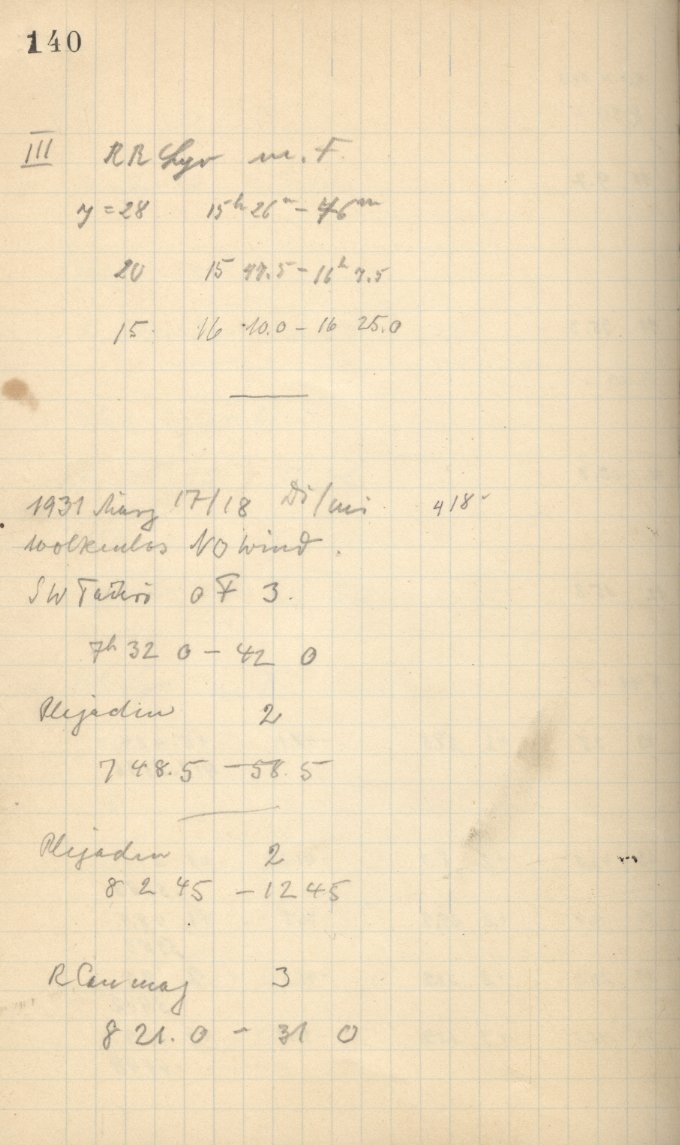 140
III RR Lyr m. F.
y = 28 15h 26m - 46m
20 15 47.5 - 16h 7.5
15. 16 10.0 - 16 25.0
1931 März 17/18 Di/Mi 418
wolkenlos NO Wind.
SW Tauri o F 3.
7h 32 0 - 42 0
Plejaden 2
7 48.5 - 58.5
Plejaden 2
8 2 45 - 12 45
R Can maj 3
8 21.0 - 31 0